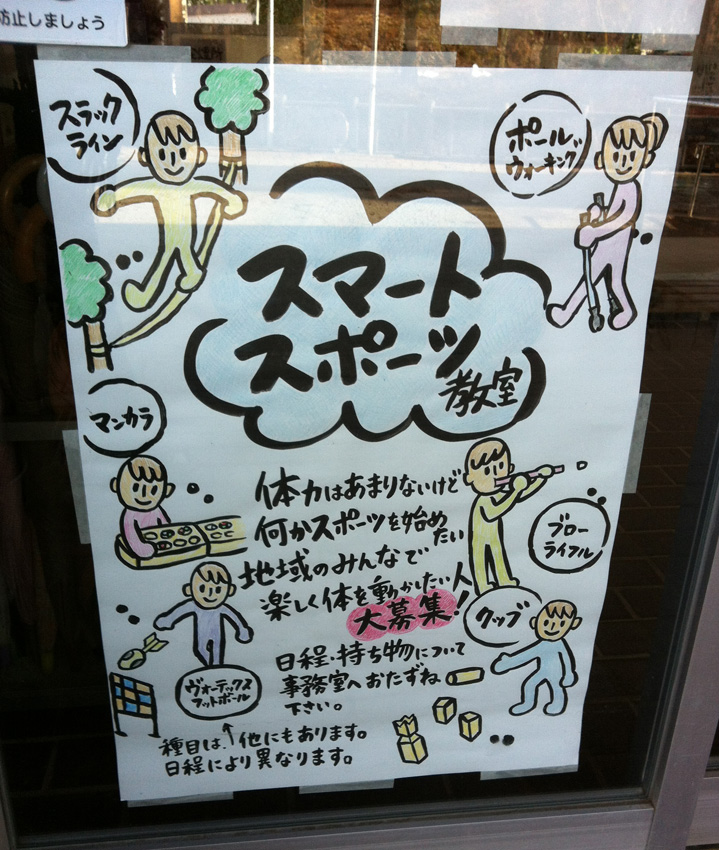 防止しましょう
スラック
ライン
ポール
ウォーキング
スマート
スポーツ
教室
マンカラ
体力はあまりないけど
何かスポーツを始めたい
地域のみんなで
楽しく体を動かしたい人
大募集!
ブロー
ライフル
クッブ
ヴォーテックス
フットボール
日程・持ち物について
事務室へおたずね
下さい。
種目は、他にもあります。
日程により異なります。